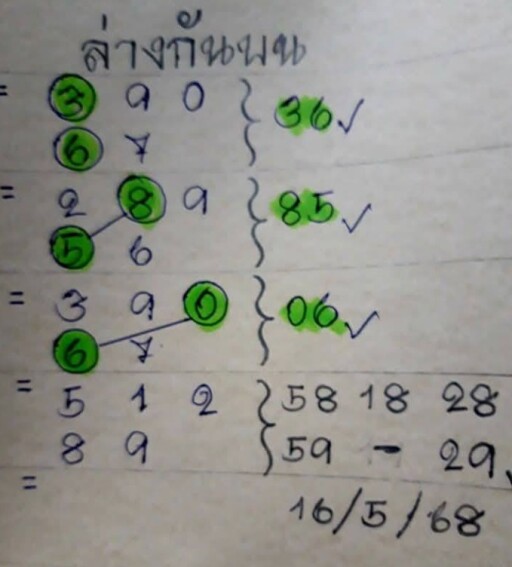 ล่างกันบน
= 3 9 0 } 36 ✓
6 7
= 2 8 9 } 85 ✓
5 6
= 3 9 0 } 06 ✓
6 7
= 5 1 2 } 58 18 28
8 9 59 - 29
=
16/5/68